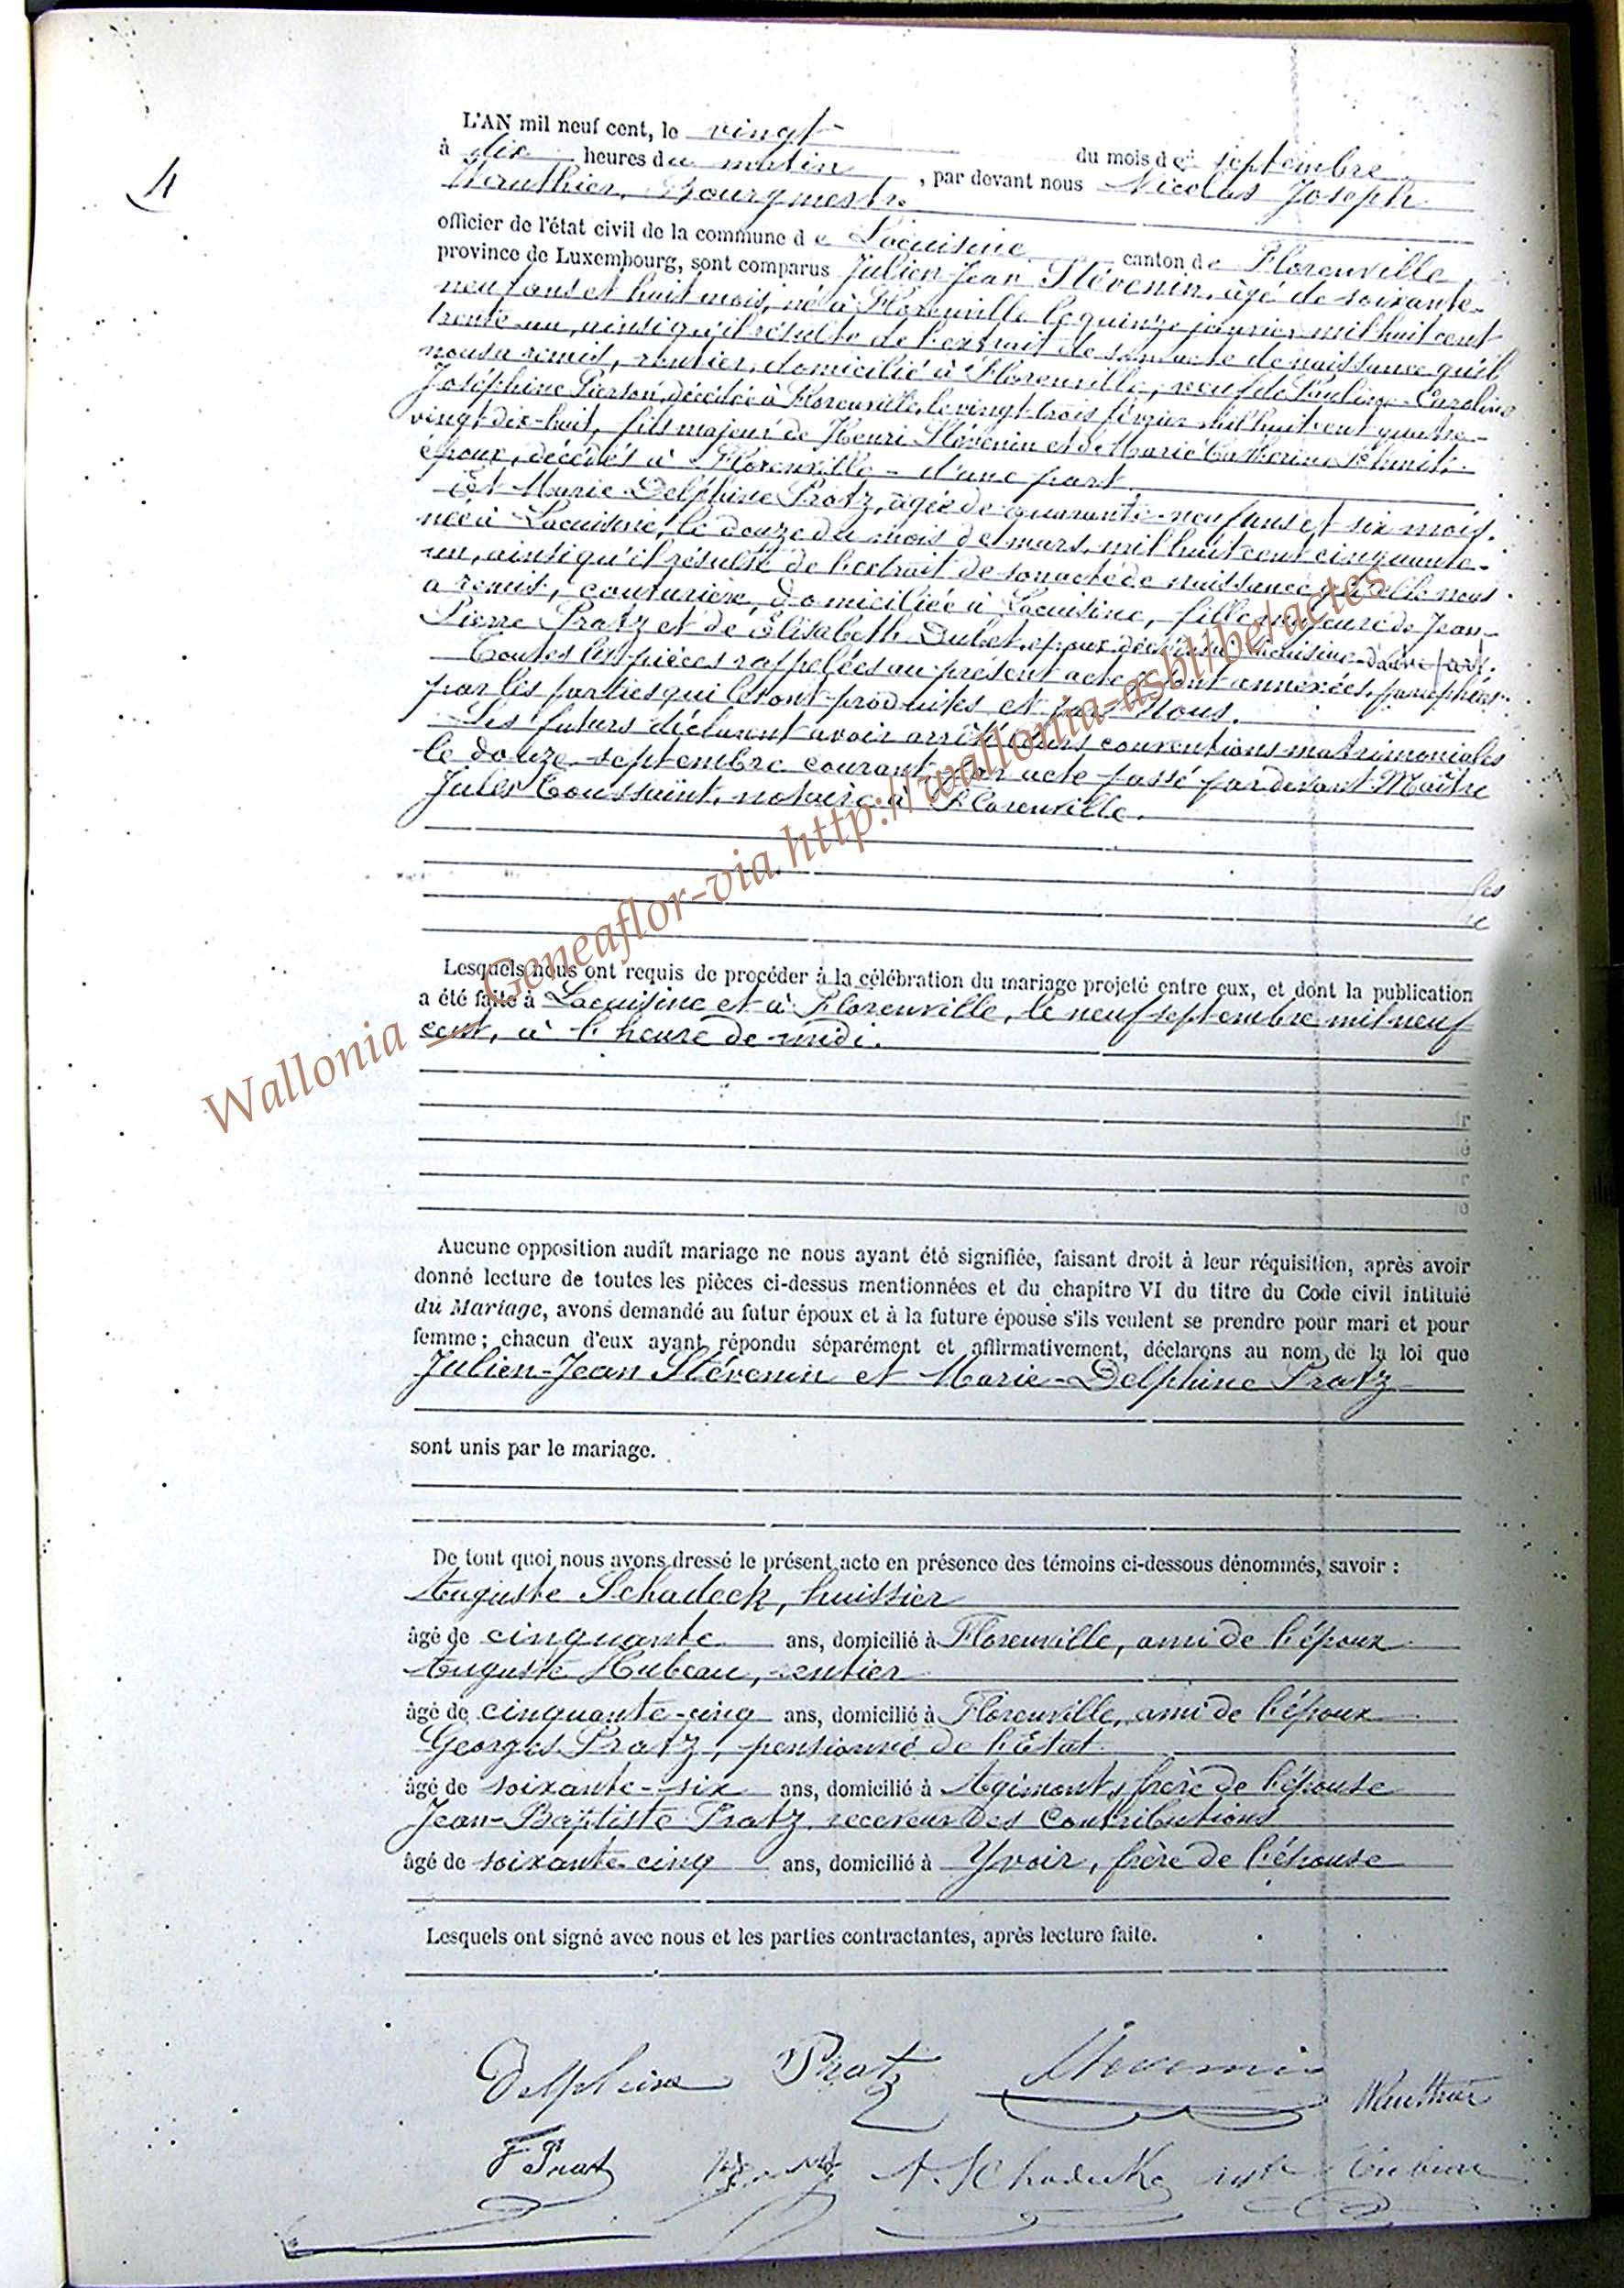 4
L'AN mil neuf cent, le vingt du mois de septembre
à dix heures du matin, par devant nous Nicolas Joseph
Wauthier, Bourgmestre
officier de l'état civil de la commune de Lacuisine canton de Florenville
province de Luxembourg, sont comparus Julien-Jean Stévenin, âgé de soixante-
neuf ans et huit mois, né à Florenville le quinze janvier mil huit cent
trente-un, ainsi qu'il résulte de l'extrait de son acte de naissance qu'il
nous a remis, rentier, domicilié à Florenville, veuf de Pauline-Caroline
Joséphine Pierson, décédée à Florenville, le vingt-trois février mil huit cent quatre-
vingt-dix-huit, fils majeur de Henri Stévenin et de Marie Catherine
époux, décédés à Florenville - d'une part
Et Marie-Delphine Pratz, âgée de quarante-neuf ans et six mois,
née à Lacuisine, le douze du mois de mars, mil huit cent cinquante-
un, ainsi qu'il résulte de l'extrait de son acte de naissance qu'elle nous
a remis, couturière, domiciliée à Lacuisine, fille majeure de Jean-
Pierre Pratz et de Élisabeth, époux décédés à Lacuisine d'autre part.
Toutes les pièces rappelées au présent acte sont annexées, paraphées
par les parties qui les ont produites et par Nous.
Les futurs déclarent avoir arrêté leurs conventions matrimoniales
le douze septembre courant par acte passé par devant Maître
Jules Toussaint, notaire à Florenville.
Lesquels nous ont requis de procéder à la célébration du mariage projeté entre eux, et dont la publication
a été faite à Lacuisine et à Florenville, le neuf septembre mil neuf
cent, à l'heure de midi.
Aucune opposition audit mariage ne nous ayant été signifiée, faisant droit à leur réquisition, après avoir
donné lecture de toutes les pièces ci-dessus mentionnées et du chapitre VI du titre du Code civil intitulé
du Mariage, avons demandé au futur époux et à la future épouse s'ils veulent se prendre pour mari et pour
femme ; chacun d'eux ayant répondu séparément et affirmativement, déclarons au nom de la loi que
Julien-Jean Stévenin et Marie-Delphine Pratz
sont unis par le mariage.
De tout quoi nous avons dressé le présent acte en présence des témoins ci-dessous dénommés, savoir :
Auguste Schadeck, huissier
âgé de cinquante ans, domicilié à Florenville, ami de l'époux
Auguste Hubeau, rentier
âgé de cinquante-cinq ans, domicilié à Florenville, ami de l'époux
Georges Pratz, pensionné de l'Etat
âgé de soixante-six ans, domicilié à Agimont, frère de l'épouse
Jean-Baptiste Pratz, receveur des Contributions
âgé de soixante-cinq ans, domicilié à Yvoir, frère de l'épouse
Lesquels ont signé avec nous et les parties contractantes, après lecture faite.
Delphine Pratz Stevenin Wauthier
Pratz A. Schadeck
Wallonia - Geneaflor-via http://wallonia-asbl/be/actes